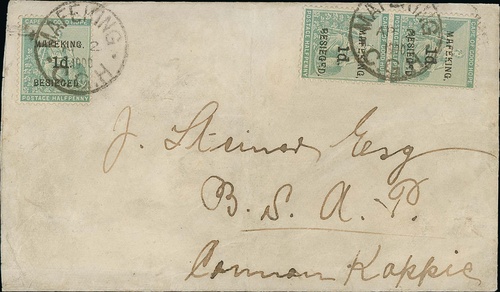 CAPE OF GOOD HOPE
MAFEKING.
1d.
BESIEGED.
POSTAGE HALFPENNY
MAFEKING
1900
C.G.H.
MAFEKING.
1d.
BESIEGED.
MAFEKING.
1d.
BESIEGED.
MAFEKING
J. Steiner Esq
B. S. A. P.
Cannon Koppie